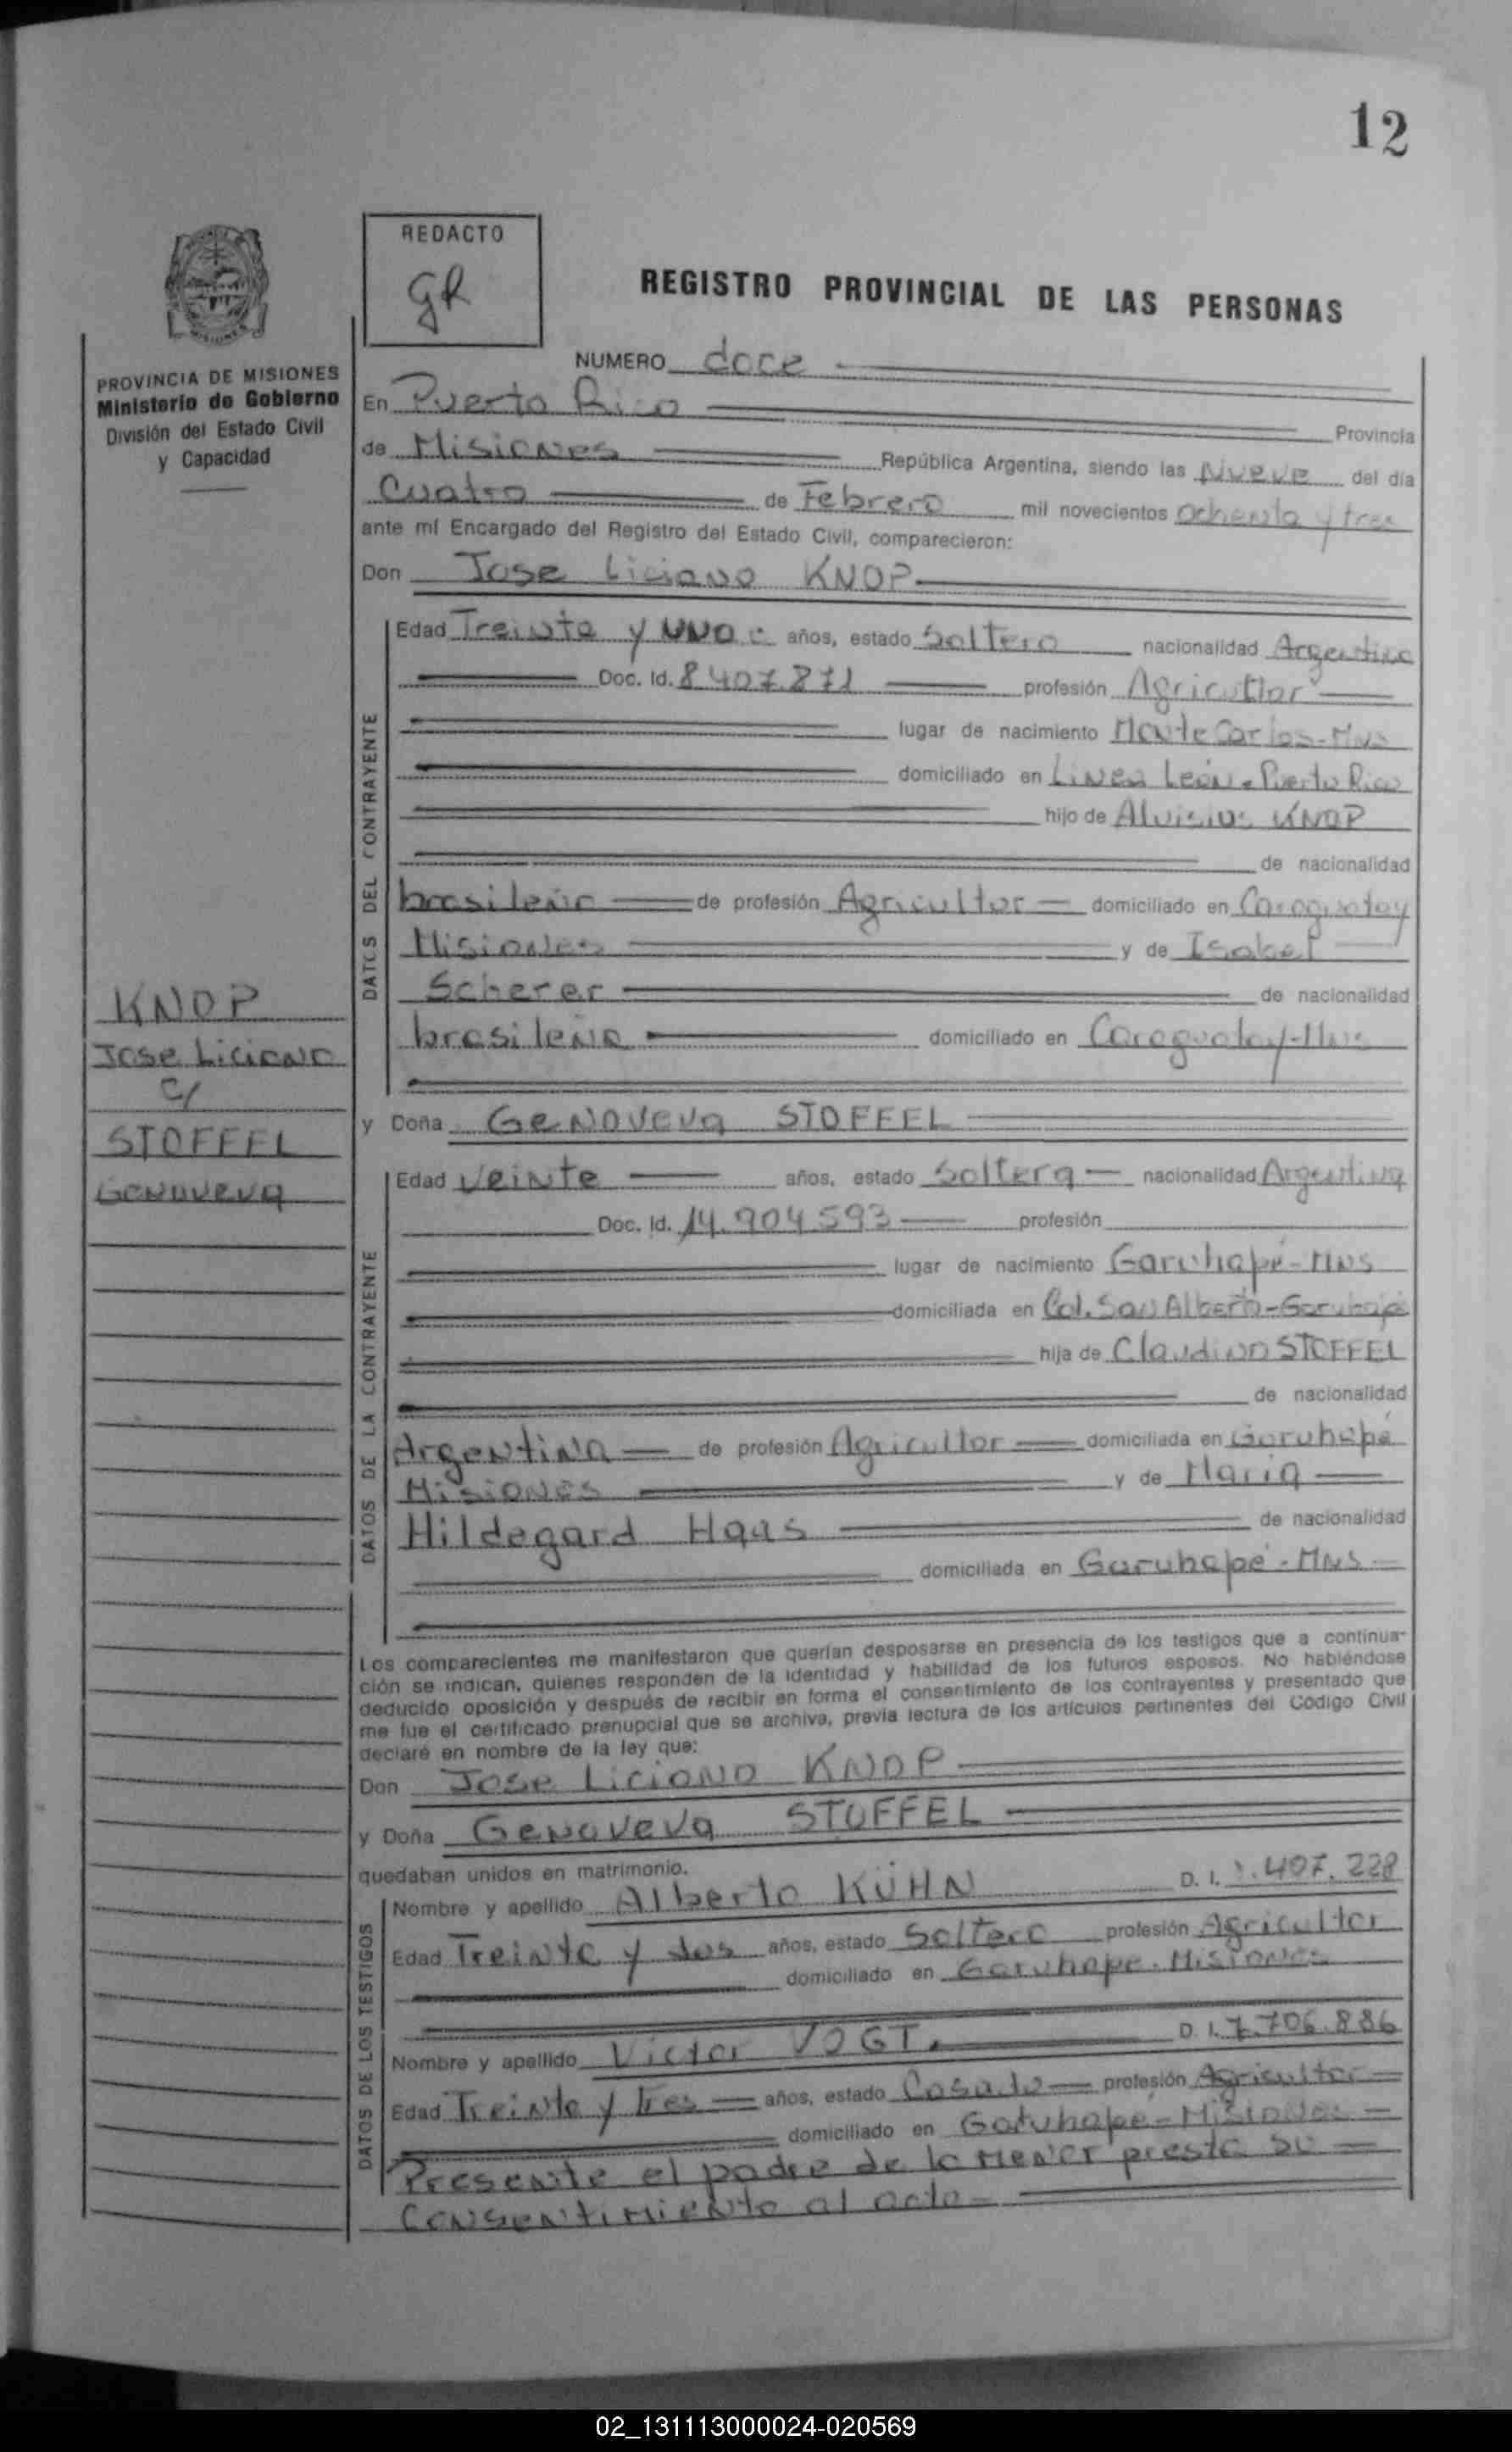 12
REDACTO
gR
REGISTRO PROVINCIAL DE LAS PERSONAS
PROVINCIA DE MISIONES
Ministerio de Gobierno
División del Estado Civil
y Capacidad
NUMERO doce
En Puerto Rico Provincia
de Misiones República Argentina, siendo las Nueve del día
Cuatro de Febrero mil novecientos ochenta y tres
ante mí Encargado del Registro del Estado Civil, comparecieron:
Don Jose Liciano KNOP
DATOS DEL CONTRAYENTE
Edad Treinta y uno años, estado Soltero nacionalidad Argentina
Doc. Id. 8.407.871 profesión Agricultor
lugar de nacimiento Monte Carlos-Mns
domiciliado en Linea León-Puerto Rico
hijo de Aluisius KNOP
de nacionalidad
brasileño de profesión Agricultor domiciliado en Caraguatay
Misiones y de Isabel
Scherer de nacionalidad
brasileña domiciliado en Caraguatay-Mns
KNOP
Jose Liciano
C/
STOFFEL
Genoveva
y Doña Genoveva STOFFEL
DATOS DE LA CONTRAYENTE
Edad Veinte años, estado Soltera nacionalidad Argentina
Doc. Id. 14.904.593 profesión
lugar de nacimiento Garuhapé-Mns
domiciliada en Col. San Alberto-Garuhapé
hija de Claudino STOFFEL
de nacionalidad
Argentina de profesión Agricultor domiciliada en Garuhapé
Misiones y de Maria
Hildegard Haas de nacionalidad
domiciliada en Garuhapé-Mns.
Los comparecientes me manifestaron que querían desposarse en presencia de los testigos que a continua-
ción se indican, quienes responden de la identidad y habilidad de los futuros esposos. No habiéndose
deducido oposición y después de recibir en forma el consentimiento de los contrayentes y presentado que
me fue el certificado prenupcial que se archiva, previa lectura de los artículos pertinentes del Código Civil
declaré en nombre de la ley que:
Don Jose Liciano KNOP
y Doña Genoveva STOFFEL
quedaban unidos en matrimonio.
DATOS DE LOS TESTIGOS
Nombre y apellido Alberto KÜHN D. I. .407.228
Edad Treinta y dos años, estado Soltero profesión Agricultor
domiciliado en Garuhape-Misiones
Nombre y apellido Victor VOGT. D. I. 7.706.886
Edad Treinta y tres años, estado Casado profesión Agricultor
domiciliado en Garuhapé-Misiones
Presente el padre de la menor presta su
Consentimiento al acto
02_131113000024-020569